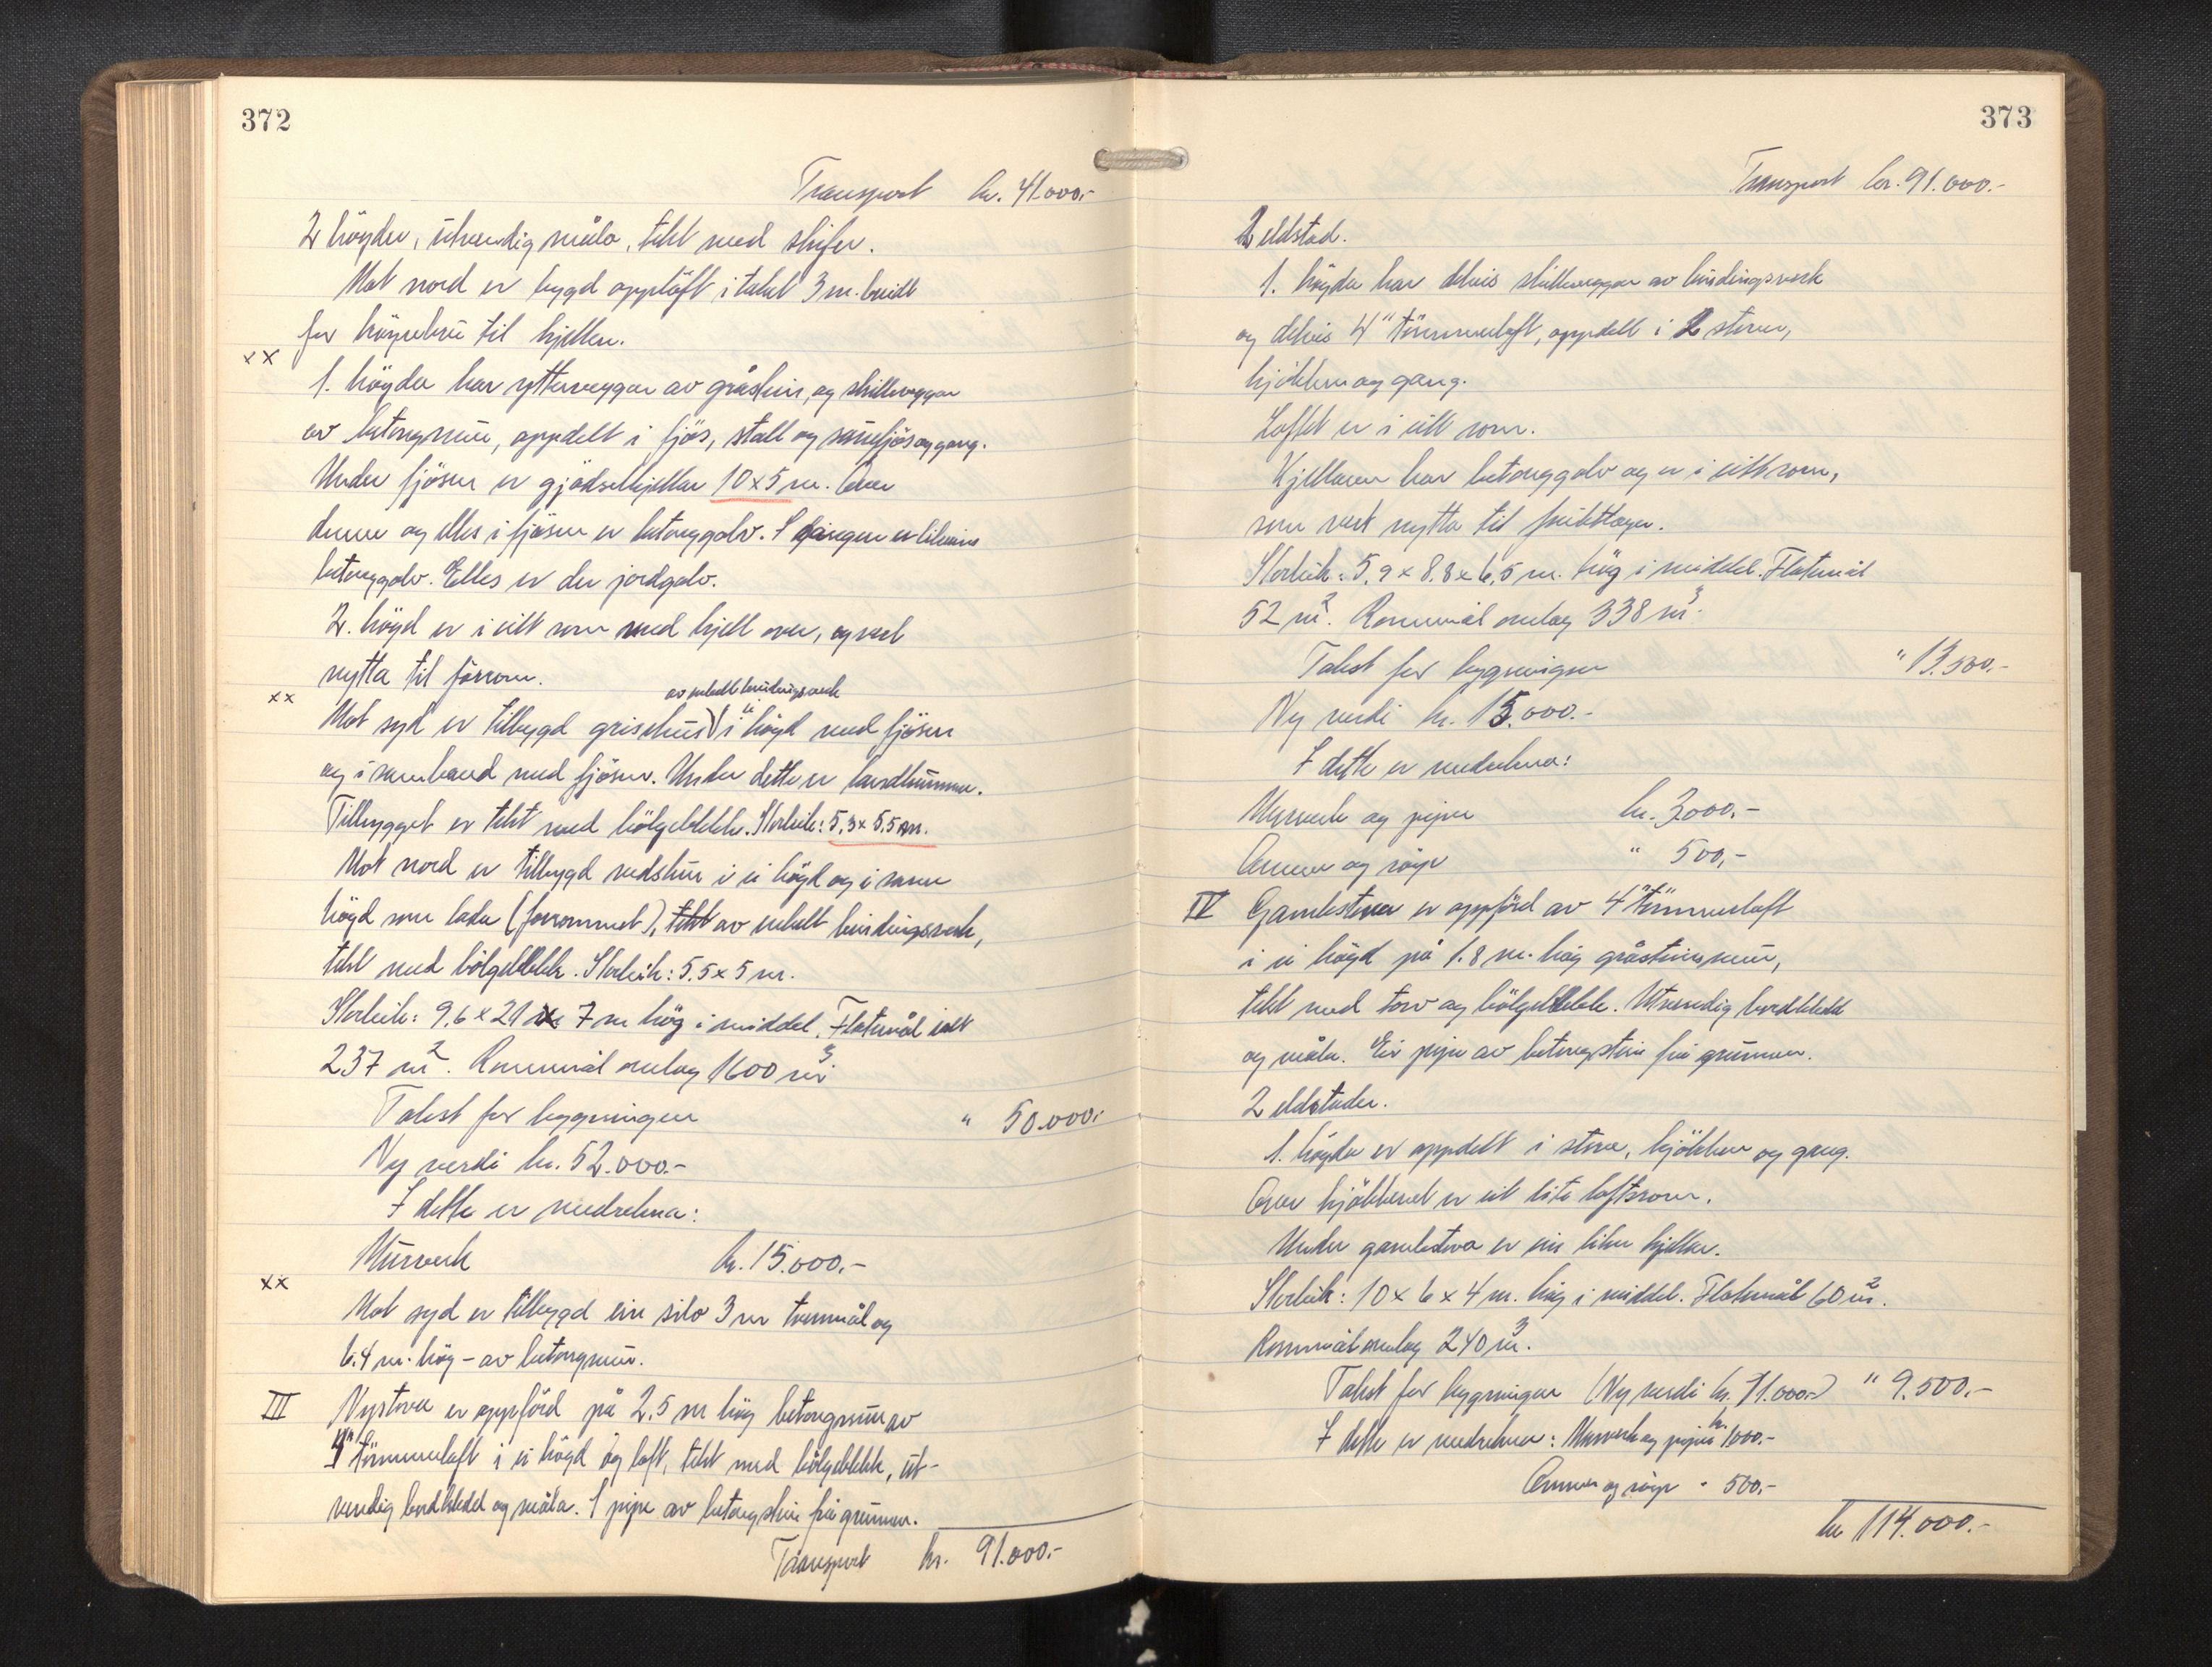 372
Transport kr. 41.000,-
2 högder, utvendig måla, tekt med skifer.
Mot nord er bygd opplöft i taket 3 m. breidt
for höyebru til hjellen.
xx
1. högda har yttervegger av gråstein, og skillevegger
av betongmur, oppdelt i fjös, stall og sauefjös og gang.
Under fjösen er gjödselkjellar 10 x 5 m. Over
denne og elles i fjösen er betonggolv. I gangen er likeins
betonggolv. Elles er der jordgolv.
2. högd er i eitt rom med hjell over, og vert
nytta til fôrrom.
xx
av enkelt bindingsverk
Mot syd er tilbygd grisehus i ei högd med fjösen
og i samband med fjösen. Under dette er landkummen.
Tilbygget er tekt med bölgeblekk. Storleik: 5,3 x 5,5 m.
Mot nord er tilbygd vedskur i ei högd og i same
högd som lada (forrommet), tekt av enkelt bindingsverk,
tekt med bölgeblekk. Storleik: 5.5 x 5 m.
Storleik: 9,6 x 21 x 7 m hög i middel. Flatemål ialt
237 m². Rommål omlag 1600 m³
Takst for bygningen " 50.000,-
Ny verdi kr. 52.000.-
I dette er medrekna:
Murverk kr. 15.000,-
xx
Mot syd er tilbygd ein silo 3 m tvermål og
6.4 m. hög - av betongmur.
III Nystova er oppförd på 2,5 m hög betongmur av
4" tömmerlaft i ei högd og loft, tekt med bölgeblekk, ut-
vendig bordkledd og måla. 1 pipe av betongstein frå grunnen.
Transport kr. 91.000.-
373
Transport kr. 91.000.-
2 eldstad.
1. högda har delvis skillevegger av bindingsverk
og delvis 4" tömmerlaft, oppdelt i 2 stover,
kjökken og gang.
Loftet er i eitt rom.
Kjellaren har betonggolv og er i eitt rom,
som vert nytta til fruktlager.
Storleik: 5,9 x 8,8 x 6,5 m. hög i middel. Flatemål
52 m². Rommål omlag 338 m³.
Takst for bygningen " 13.500.-
Ny verdi kr. 15.000.-
I dette er medrekna:
Murverk og piper kr. 3000.-
Omner og röyr " 500,-
IV Gamlestova er oppförd av 4" tömmerlaft
i ei högd på 1.8 m. hög gråsteinsmur,
tekt med torv og bölgeblekk. Utvendig bordkledd
og måla. Ei pipe av betongstein frå grunnen.
2 eldstader.
1. högda er oppdelt i stova, kjökken og gang.
Over kjökkenet er eit lite loftsrom.
Under gamlestova er ein liten kjellar.
Storleik: 10 x 6 x 4 m. hög i middel. Flatemål 60 m².
Rommål omlag 240 m³.
Takst for bygningen (Ny verdi kr. 11.000.-) " 9.500.-
I dette er medrekna: Murverk og piper kr. 1000.-
Omner og röyr " 500,-
kr 114.000.-